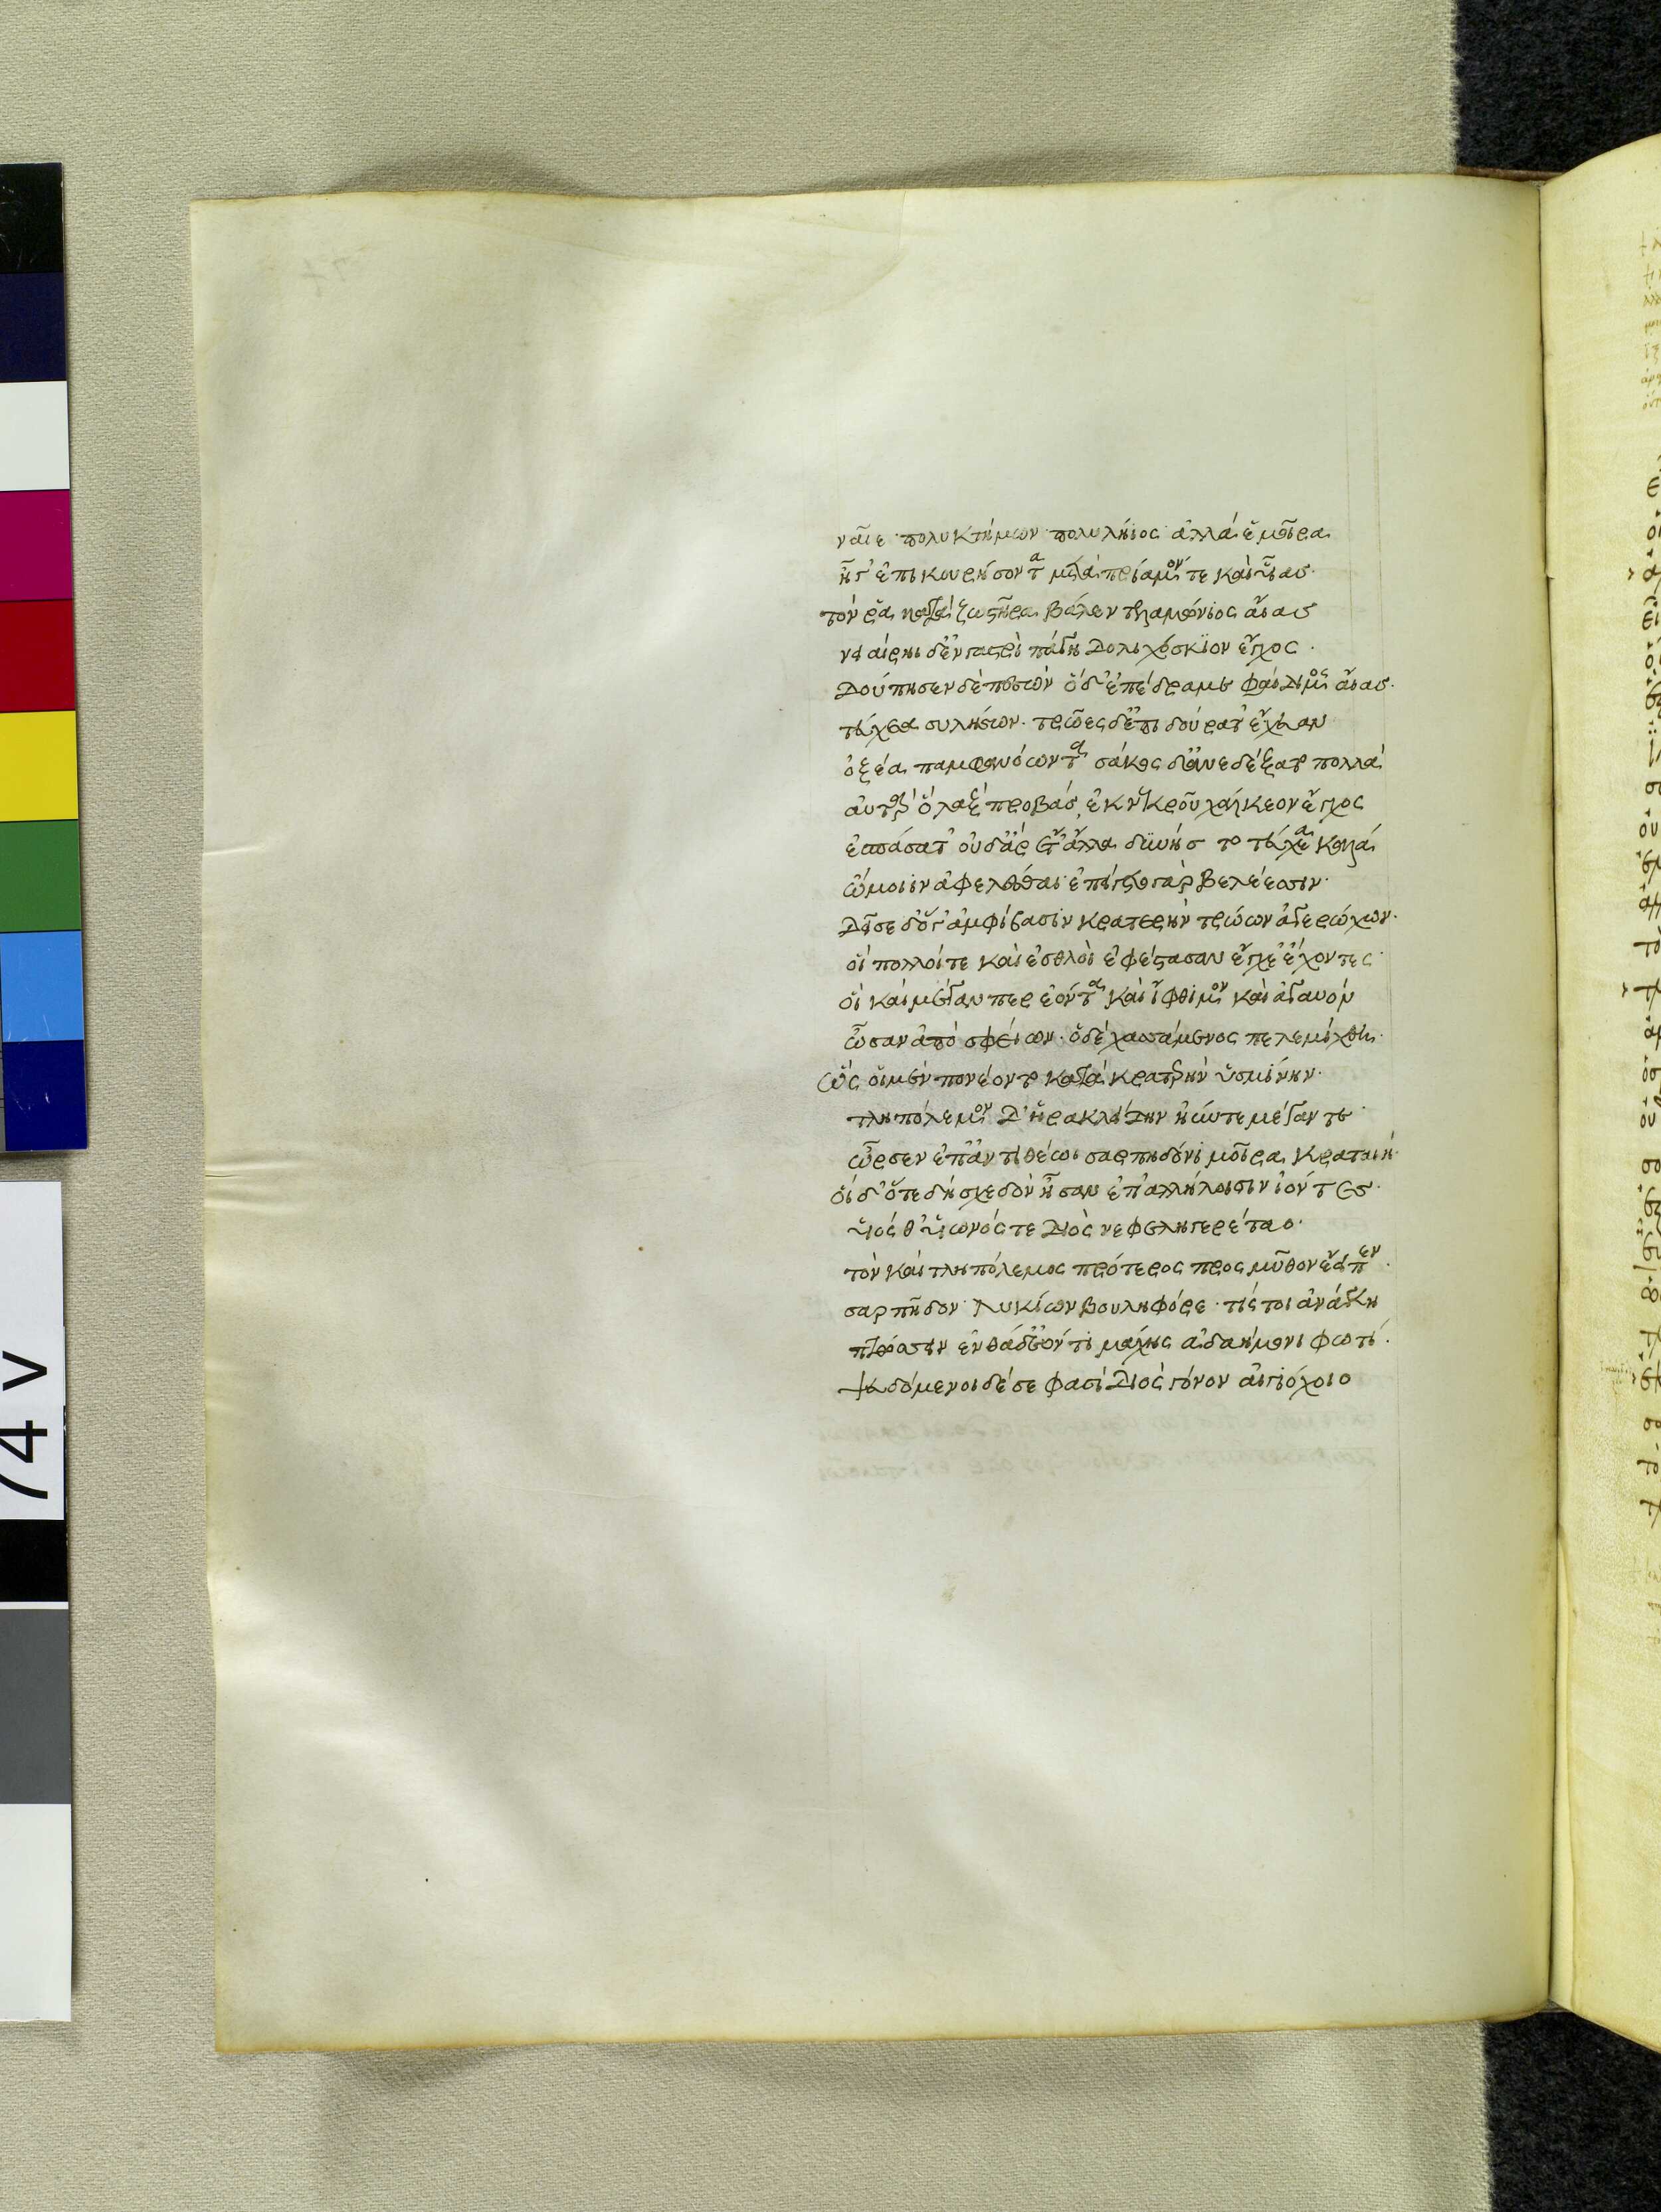 ναῖε πολυκτήμων πολυλήϊος ἀλλά ἑ μοῖρα
ἦγ' ἐπικουρήσοντα μετὰ πρίαμόν τε καὶ υἷας·
τόν ῥα κατὰ ζωστῆρα βάλεν τελαμώνιος αἴας
νειαίρηι δ' ἐν γαστρὶ πάγη δολιχόσκιον ἔγχος·
δούπησεν δὲ πεσών ὁ δ' ἐπέδραμε φαίδιμος αἴας·
τεύχεα συλήσων· τρῶες δ' ἐπὶ δούρατ' ἔχευαν
ὀξέα παμφανόωντα σάκος δ' ἀνεδέξατο πολλά
αὐτὰρ ὁ λὰξ προβὰς ἐκ νεκροῦ χάλκεον ἔγχος
ἐσπάσατ' οὐδ' ἄρ ἔτ' ἄλλα δυνήσατο τεύχεα καλά
ὤμοιιν ἀφελέσθαι ἐπείγετο γὰρ βελέεσσιν·
δεῖσε δ' ὅγ' ἀμφίβασιν κρατερὴν τρώων ἀγερώχων·
οἳ πολλοί τε καὶ ἐσθλοὶ ἐφέστασαν ἔγχε' ἔχοντες
οἵ καὶ μέγαν περ ἐόντα καὶ ἴφθιμον καὶ ἀγαυόν
ὦσαν ἀπὸ σφείων· ὁ δὲ χασσάμενος πελεμίχθη·
ὣς οἱ μὲν πονέοντο κατὰ κρατερὴν ὑσμίνην·
τληπόλεμον δ' ἡρακλείδην ἠύν τε μέγαν τε·
ὦρσεν ἐπ' ἀντιθέωι σαρπηδόνι μοῖρα κραταιή·
οἱ δ' ὅτε δὴ σχεδὸν ἦσαν ἐπ' ἀλλήλοισιν ἰόντες·
υἱός θ' υἱωνός τε διὸς νεφεληγερέταο·
τὸν καὶ τληπόλεμος πρότερος προς μῦθον ἔειπεν·
σαρπῆδον λυκίων βουληφόρε· τίς τοι ἀνάγκη
πτώσσειν ἐνθάδ' ἐόντι μάχης ἀδαήμονι φωτί·
ψευδόμενοι δέ σε φασὶ διὸς γόνον αἰγιόχοιο
74 v